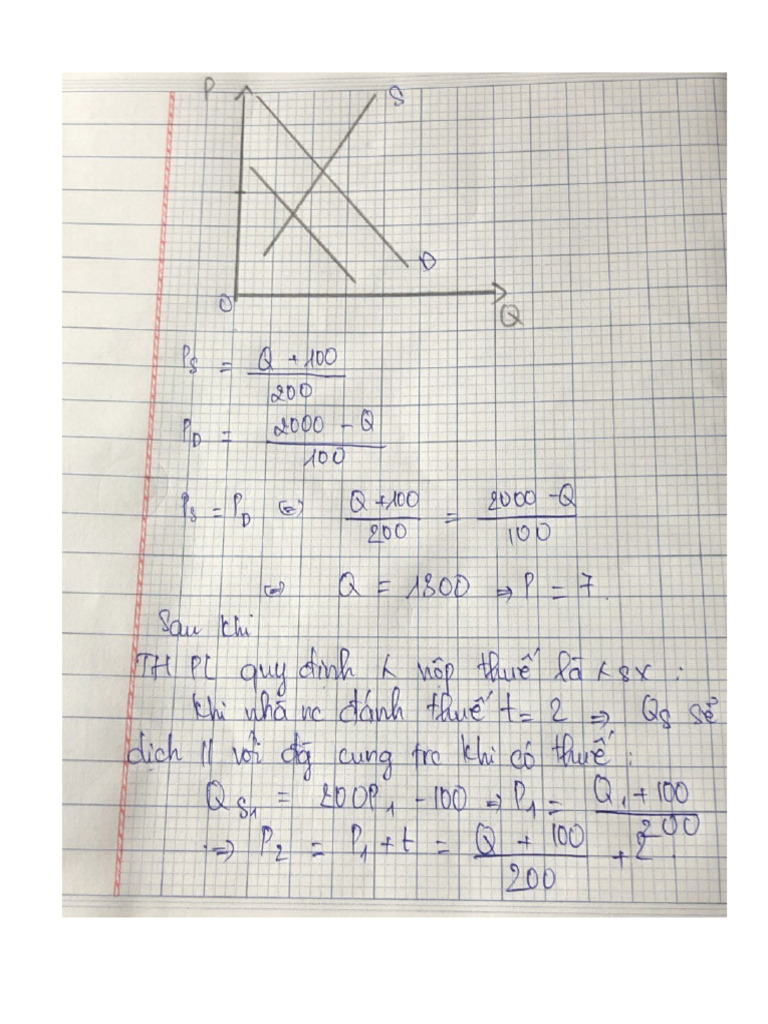 P
S
D
O
Q
P_S = (Q + 100)/200
P_D = (2000 - Q)/100
P_S = P_D ⇔ (Q + 100)/200 = (2000 - Q)/100
⇔ Q = 1300 ⇒ P = 7.
Sau khi
TH PL quy định < nộp thuế là < sx :
Khi nhà nc đánh thuế t = 2 ⇒ Q_S sẽ
dịch // với đg cung trc khi có thuế :
Q_S1 = 200P_1 - 100 ⇒ P_1 = (Q_1 + 100)/200
⇒ P_2 = P_1 + t = (Q + 100)/200 + 2.